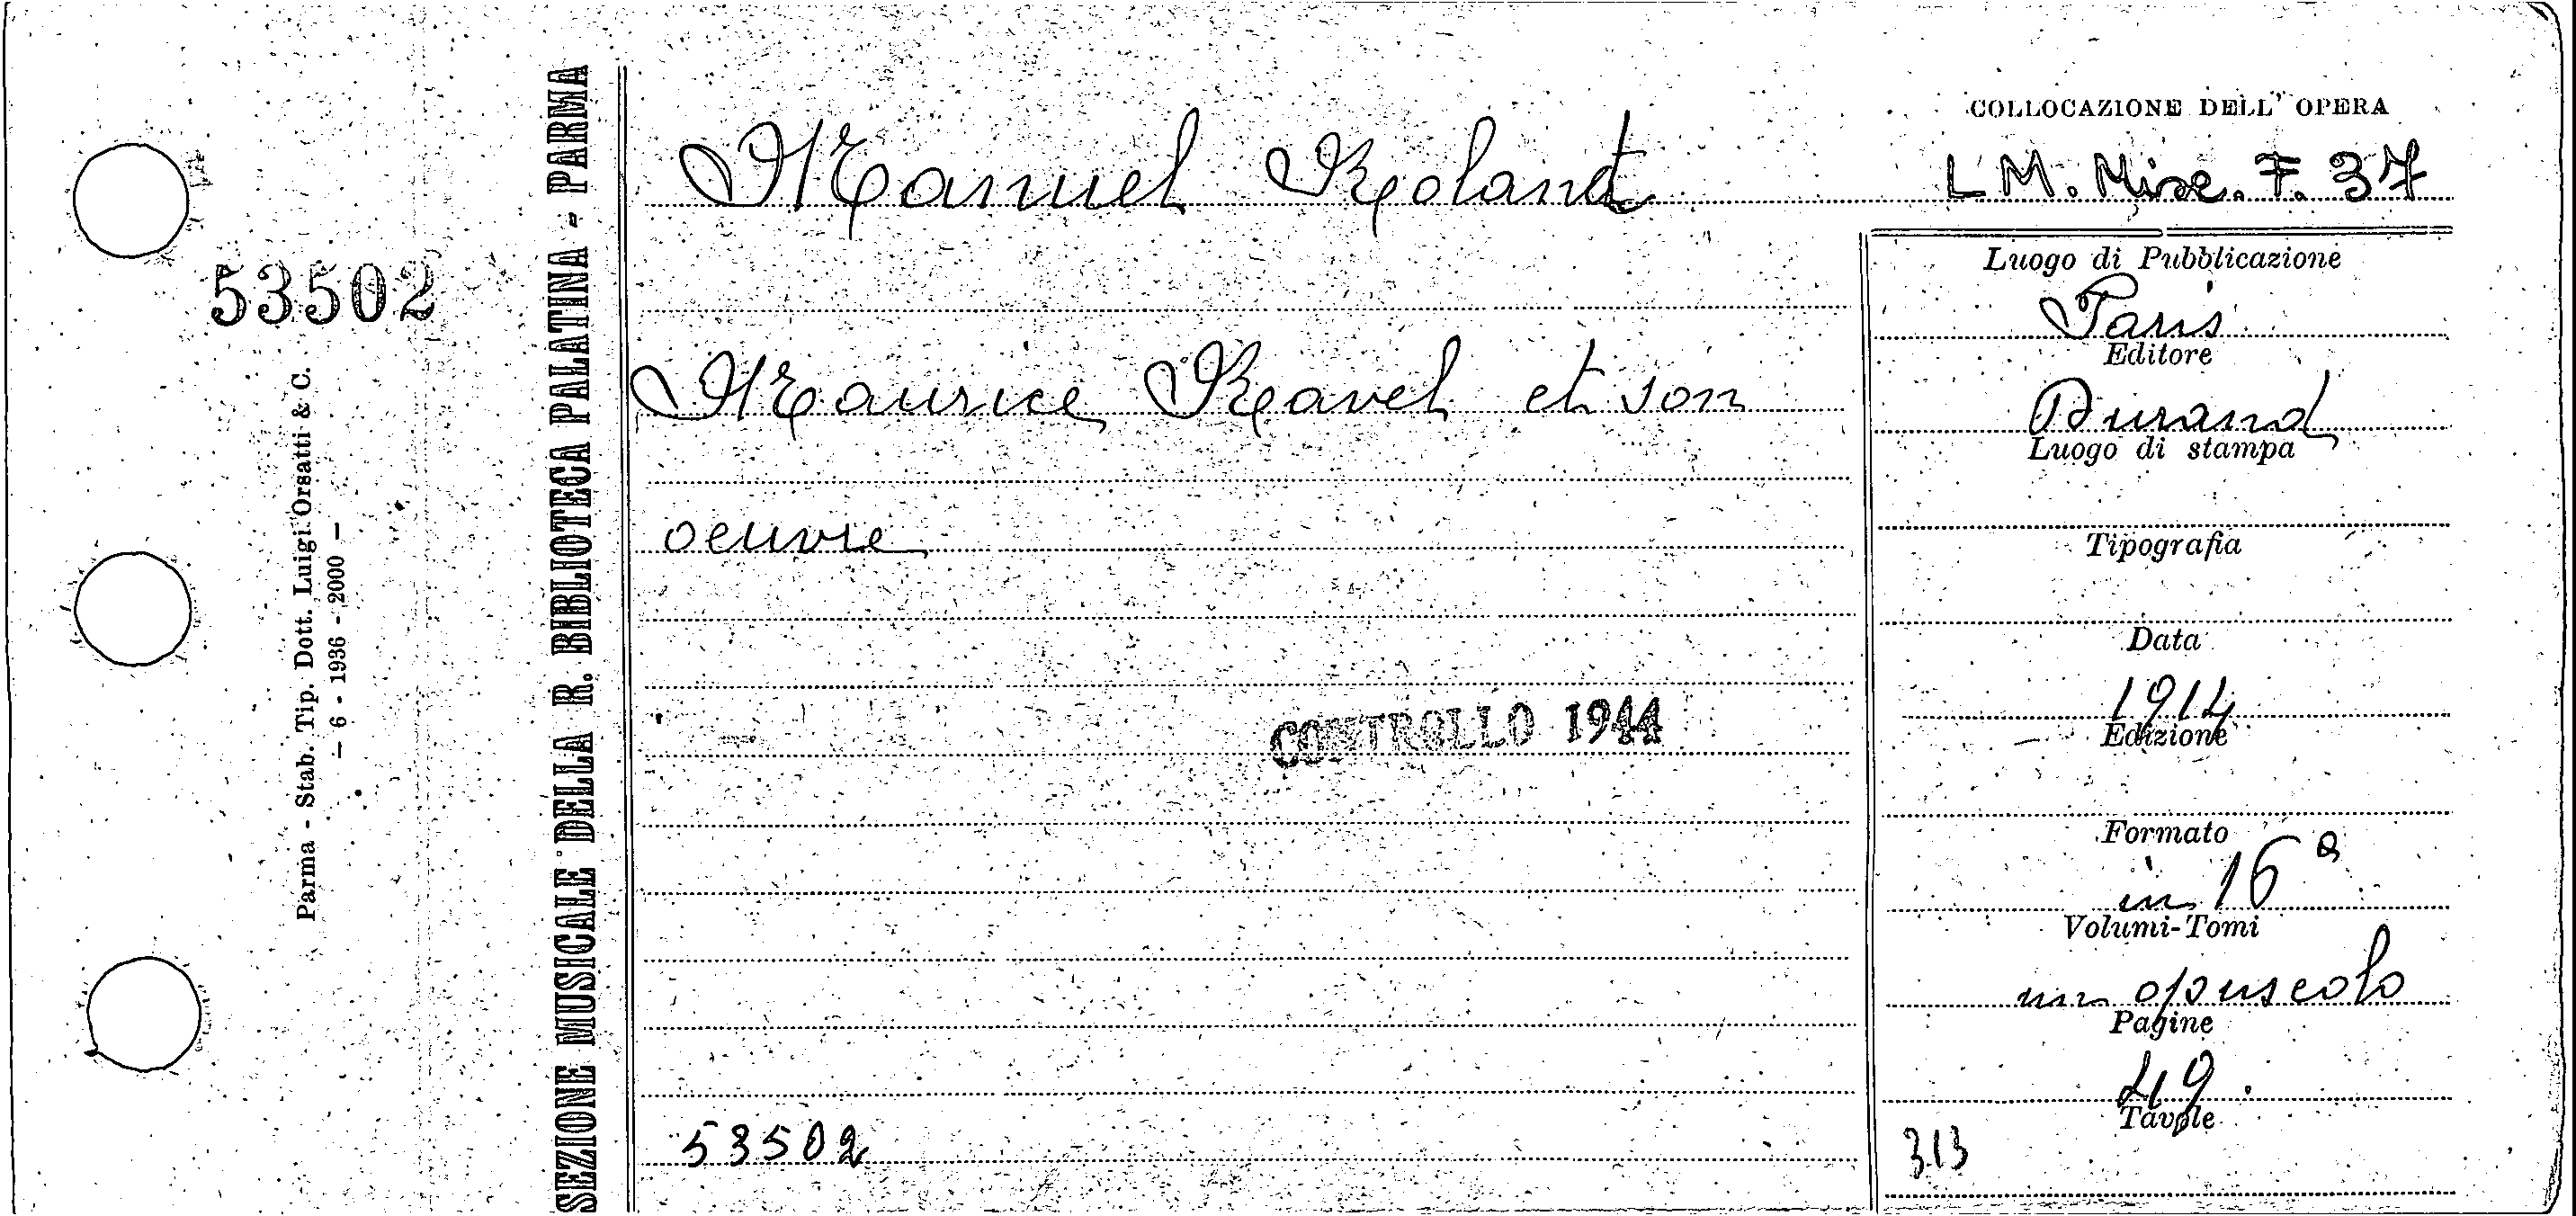 COLLOCAZIONE DELL' OPERA
Manuel Roland
L M. Misc. F. 37
53502
Luogo di Pubblicazione
Paris
Editore
Maurice Ravel et son
Durand
Luogo di stampa
oeuvre
Tipografia
Data
CONTROLLO 1944
1914
Edizione
Formato
in 16°
Volumi-Tomi
un opuscolo
Pagine
49.
Tavole
53502
313
SEZIONE MUSICALE DELLA R. BIBLIOTECA PALATINA - PARMA
Parma - Stab. Tip. Dott. Luigi Orsatti & C.
- 6 - 1936 - 2000 -